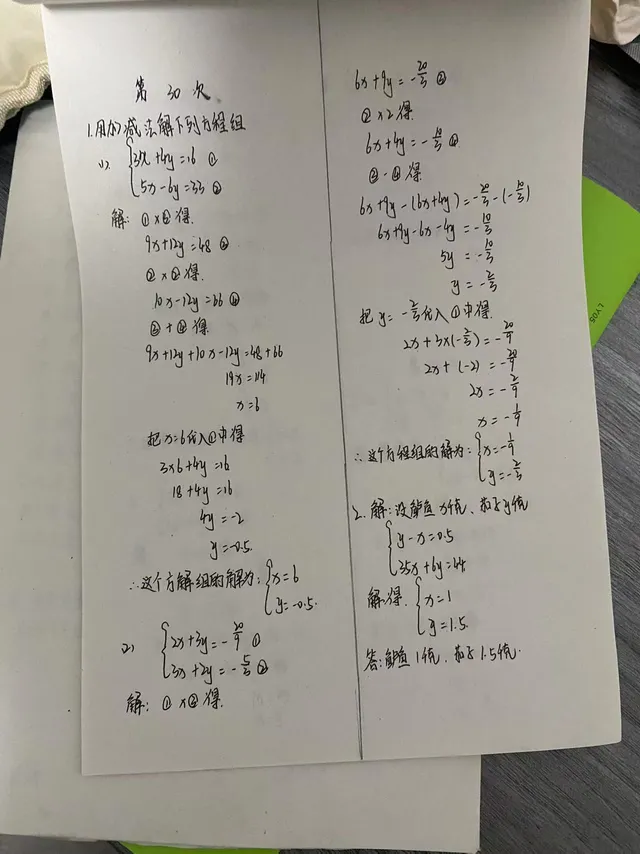 第 30 次
1.用加减法解下列方程组
(1). {3x+4y=16 ①
5x-6y=33 ②
解: ①×③得.
9x+12y=48 ③
②×②得.
10x-12y=66 ④
③+④得
9x+12y+10x-12y=48+66
19x=114
x=6
把x=6代入①中得
3×6+4y=16
18+4y=16
4y=-2
y=-0.5.
∴这个方解组的解为: {x=6
y=-0.5.
(2) {2x+3y=-20/9 ①
3x+2y=-5/3 ②
解: ①×③得.
6x+9y=-20/3 ③
②×2得
6x+4y=-10/3 ④
③-④得
6x+9y-(6x+4y)=-20/3-(-10/3)
6x+9y-6x-4y=-10/3
5y=-10/3
y=-2/3
把y=-2/3代入①中得.
2x+3×(-2/3)=-20/9
2x+(-2)=-20/9
2x=-2/9
x=-1/9
∴这个方程组的解为: {x=-1/9
y=-2/3
2.解:设鲈鱼x元、茄子y元
{y-x=0.5
35x+6y=44
解得. {x=1
y=1.5
答:鲈鱼1元、茄子1.5元.
LY05